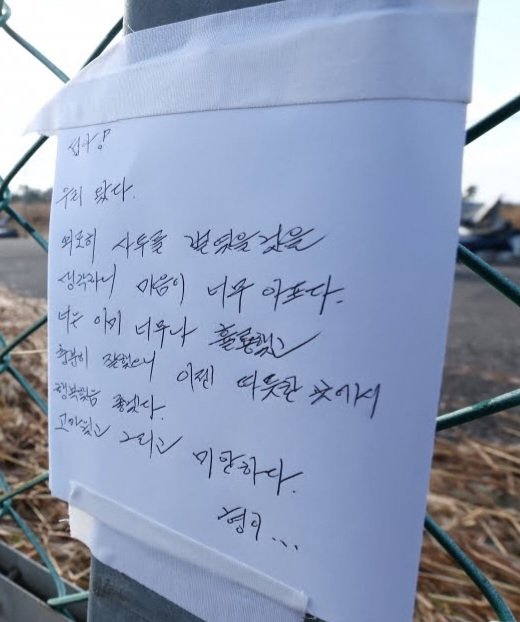 우리 왔다.
외로히 사투를 벌였을 것을
생각하니 마음이 너무 아프다.
너는 이미 너무나 훌륭했고
충분히 잘했으니 이젠 따뜻한 곳에서
행복했음 좋겠다.
고마웠고 그리고 미안하다.
형이...